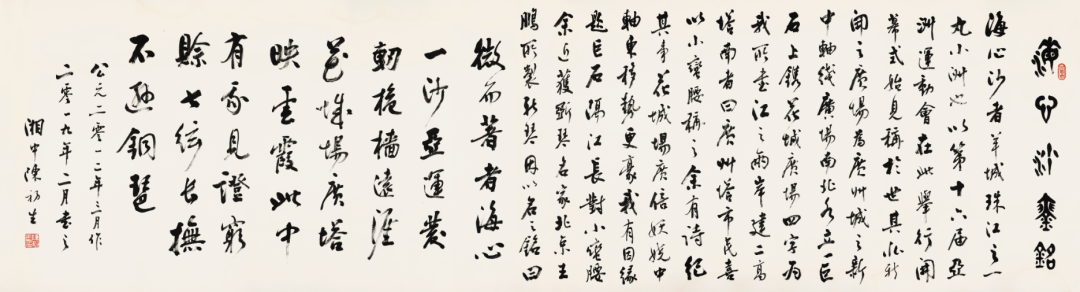 海心沙琴銘
海心沙者羊城珠江之一
丸小洲也以第十六届亞
洲運動會在此舉行開
幕式始見稱於世其北新
開之廣場為廣州城之新
中軸线廣場南北各立一巨
石上鐫花城廣場四字为
我所书江之兩岸建二高
塔南者曰廣州塔市民喜
以小蠻腰稱之余有詩紀
其事花城場廣倍妖娆中
軸東移勢更豪我有因缘
题巨石隔江長對小蠻腰
余近獲斲琴名家北京王
鵬所製新琴因以名之銘曰
微而著者海心
一沙亞運發
軔桅檣遠涯
花城場廣塔
映雲霞此中
有象見證窮
賒七弦长撫
不遜銅琶
公元二零一二年三月作
二零一九年二月书之
湘中陳初生